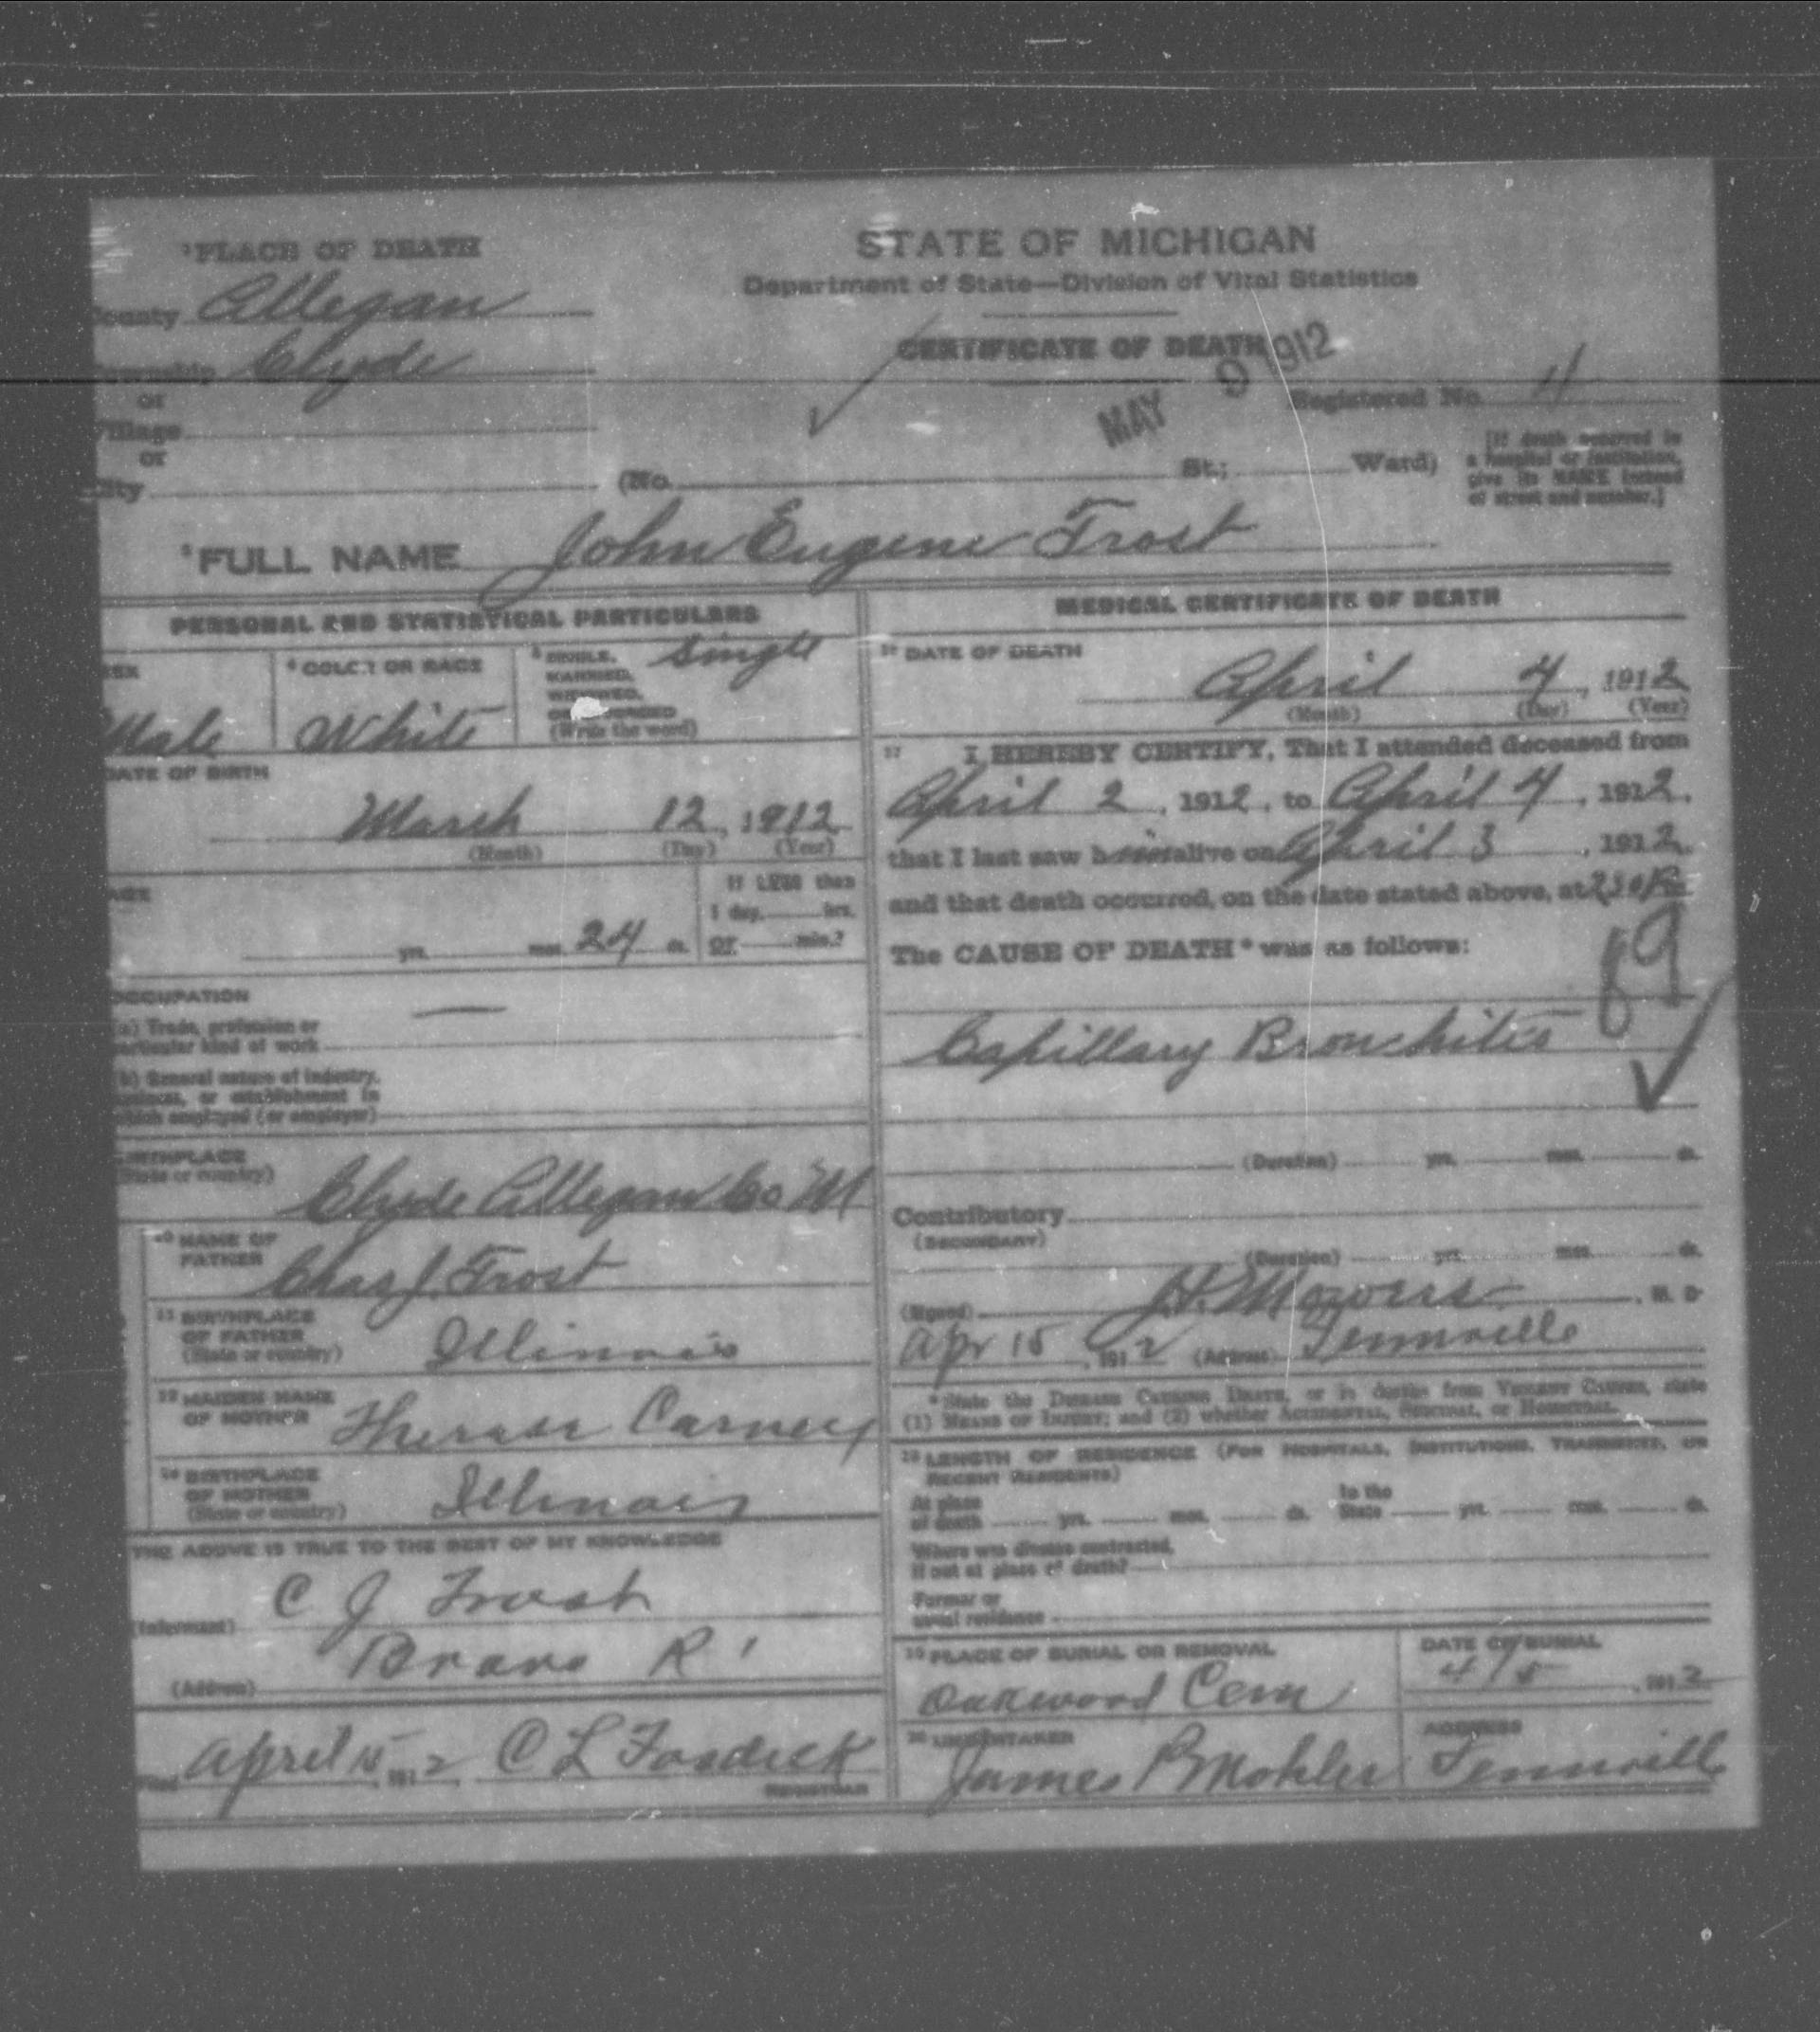 PLACE OF DEATH
County Allegan
Township Clyde
or
Village
or
City
STATE OF MICHIGAN
Department of State—Division of Vital Statistics
CERTIFICATE OF DEATH
MAY 9 1912
Registered No. 11
(No. St.; Ward)
[If death occurred in
a hospital or institution,
give its NAME instead
of street and number.]
FULL NAME John Eugene Frost
PERSONAL AND STATISTICAL PARTICULARS
SEX
Male
4 COLOR OR RACE
White
5 SINGLE,
MARRIED,
WIDOWED,
OR DIVORCED
(Write the word)
Single
DATE OF BIRTH
March 12, 1912
(Month) (Day) (Year)
AGE
yrs. mos. 24 ds.
If LESS than
1 day, hrs.
or min.?
OCCUPATION
—
(a) Trade, profession or
particular kind of work
(b) General nature of industry,
business, or establishment in
which employed (or employer)
BIRTHPLACE
(State or country)
Clyde Allegan Co M
10 NAME OF
FATHER
Chas J. Frost
11 BIRTHPLACE
OF FATHER
(State or country)
Illinois
12 MAIDEN NAME
OF MOTHER
Carney
13 BIRTHPLACE
OF MOTHER
(State or country)
Illinois
THE ABOVE IS TRUE TO THE BEST OF MY KNOWLEDGE
(Informant) C J Frost
(Address) Bravo R 1
Filed April 15 1912 C L Fosdick
REGISTRAR
MEDICAL CERTIFICATE OF DEATH
16 DATE OF DEATH
April 4, 1912
(Month) (Day) (Year)
17 I HEREBY CERTIFY, That I attended deceased from
April 2, 1912, to April 4, 1912,
that I last saw him alive on April 3, 1912,
and that death occurred, on the date stated above, at 230 Pm.
The CAUSE OF DEATH* was as follows:
89
Capillary Bronchitis
(Duration) yrs. mos. ds.
Contributory
(SECONDARY)
(Duration) yrs. mos. ds.
(Signed) Mowers, M. D
Apr 15, 1912 (Address) Fennville
*State the DISEASE CAUSING DEATH, or in deaths from VIOLENT CAUSES, state
(1) MEANS OF INJURY; and (2) whether ACCIDENTAL, SUICIDAL, or HOMICIDAL.
18 LENGTH OF RESIDENCE (FOR HOSPITALS, INSTITUTIONS, TRANSIENTS, OR
RECENT RESIDENTS)
At place
of death yrs. mos. ds.
In the
State yrs. mos. ds.
Where was disease contracted,
if not at place of death?
Former or
usual residence
19 PLACE OF BURIAL OR REMOVAL
Oakwood Cem
DATE OF BURIAL
4/5, 1912
20 UNDERTAKER
James B Mohler
ADDRESS
Fennville